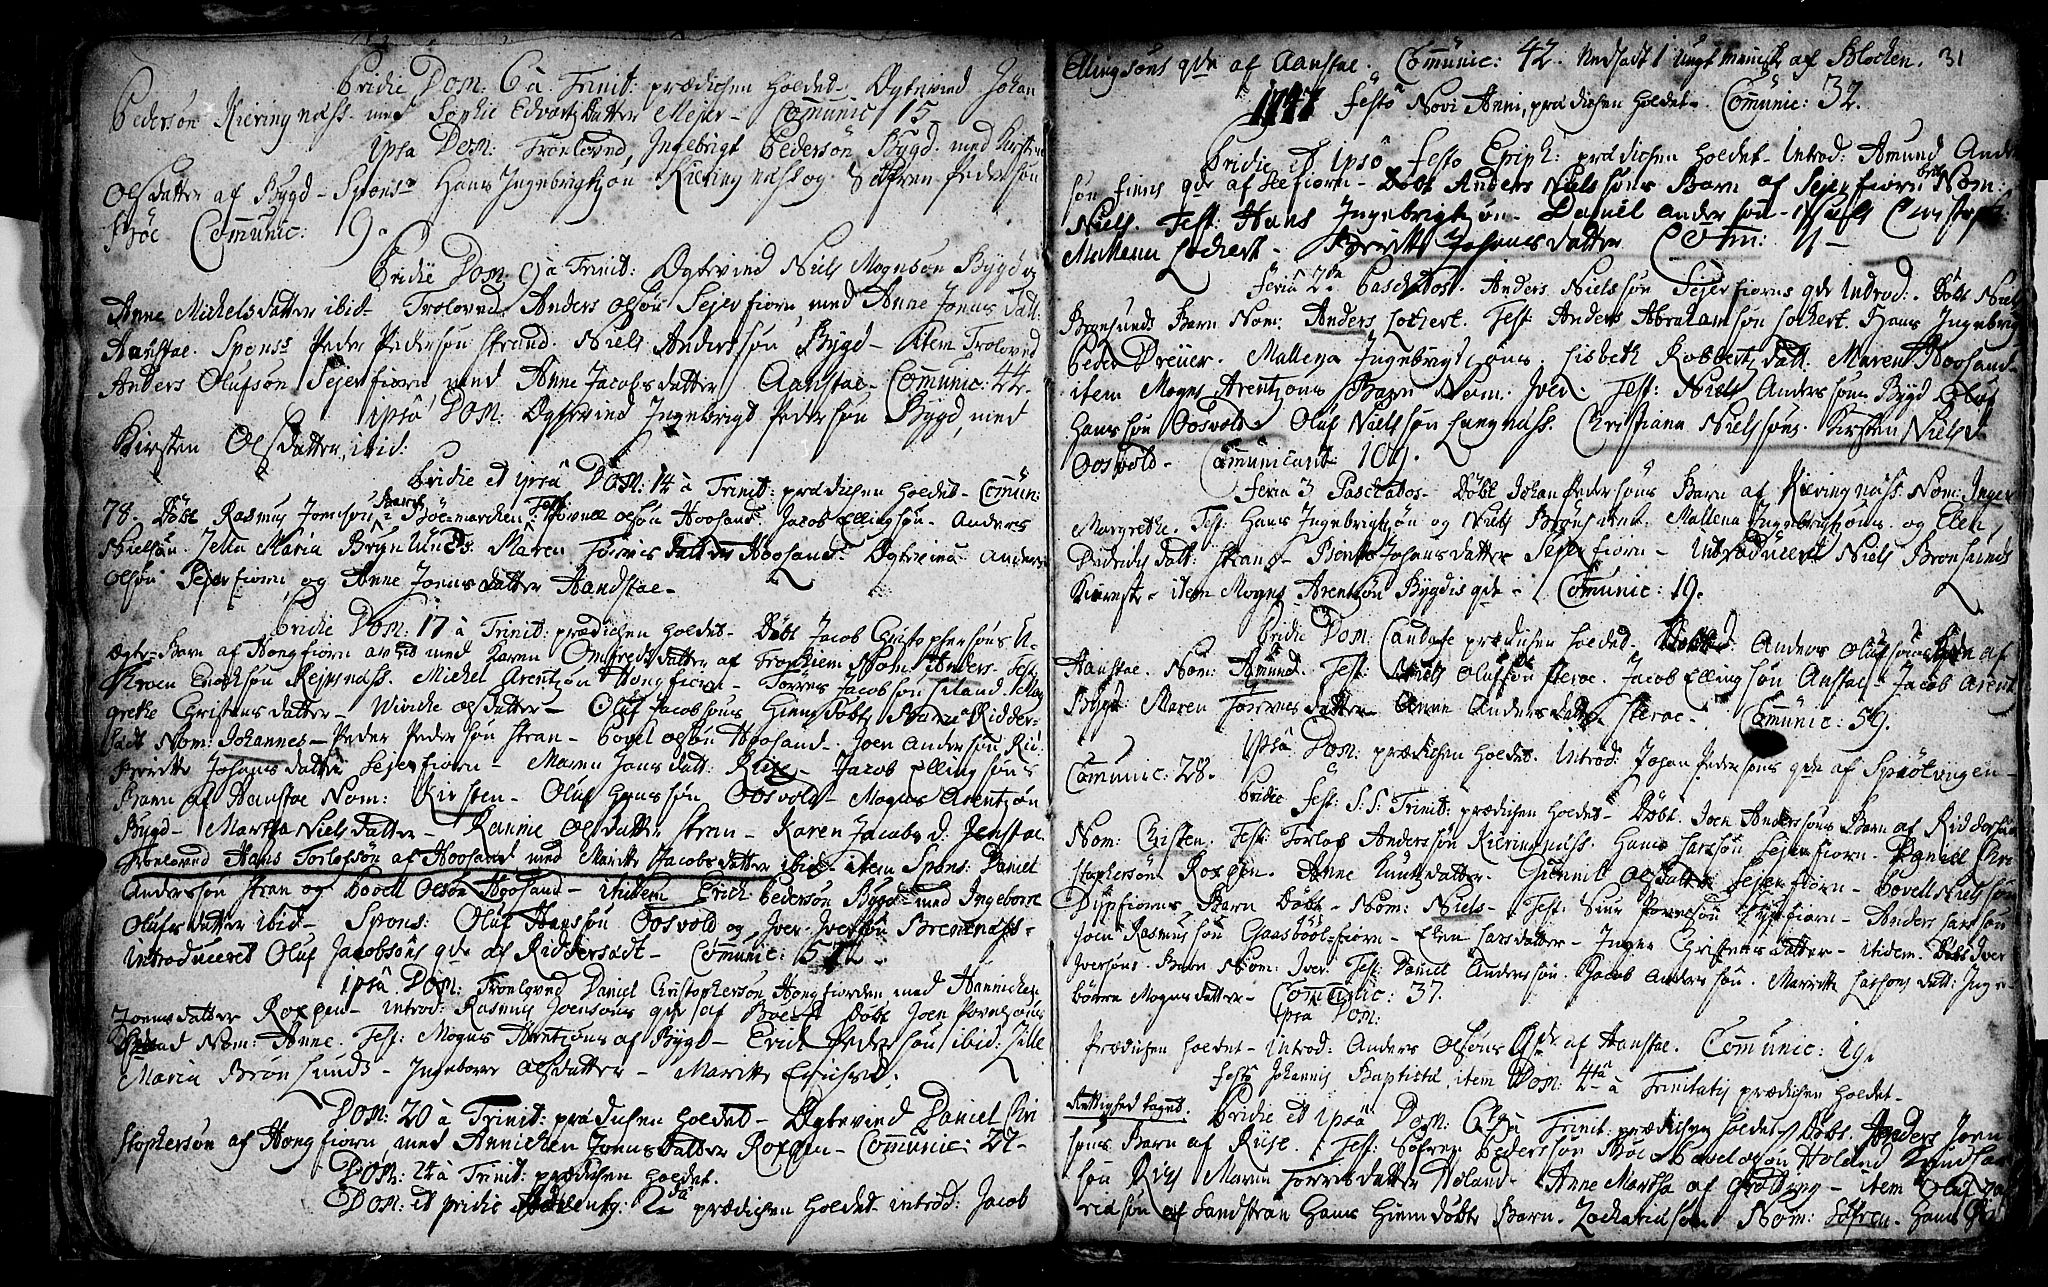 Pridie Dom: 6 à Trinit: prædichen holdet. Egtevied Johan
Pedersøn Kieringnæss med Sophie Edvartz Datter Mejer – Comunic 15 –
Ipsa Dom: Troeloved, Ingebrigt Pedersøn Bygd med Kirsten
Olsdatter af Bygd – Spons: Hans Ingebrigtzøn Kieringnæss og Søfren Pedersøn
Bøe Comunic: 9.
Pridie Dom: 9 à Trinit: Egtevied Niels Mognsøn Bygd og
Anne Michelsdatter ibid – Troloved Anders Olsøn Sejerfiorn, med Anne Jonas Datt:
Aanstae. Spons: Peder Pedersøn Strand. Niels Anderssøn Bygd – Item Troloved
Anders Olufsøn Sejerfiorn med Anne Jacobsdatter Aanstae – Comunic: 44.
ipsa Dom: Egtevied Ingebrigt Pedersøn Bygd, med
Kirsten Olsdatter, ibid:
Pridie et ipsa Dom: 14 à Trinit: prædichen holdet – Comun:
78. Døbt Rasmus Joensøns Barn Bøe-marchen Test: Povell Olsøn Hoosand Jacob Ellingsøn. Anders
Nielsøn. Maria Brynlunds. Maren Torris datter Hoosand. Egtevied Anders
Olsøn Sejerfiorn, og Anne Jonas datter Aandstae –
Pridie Dom: 17 à Trinit: prædichen holdet – Døbt Jacob Christophersøns U-
ægte-Barn af Hongfiorn med Karen datter af Nom: Anders. Test:
Ericksøn Reipsnæss. Michel Arentzøn Hongfiorn – Tørres Jacobsøn Mar-
grethe Christens datter – Wivicke Olsdatter – Oluf Jacobsøns Hiemdøbte Barn Ridder-
sadt Nom: Johannes – Peder Pedersøn Stran – Povel Olsøn Hoosand. Joen Andersøn Rid:
Birritte Johans datter Sejerfiorn – Maren Jansdatt: Riise – Jacob Ellingsøns
Barn af Aanstae Nom: Kirsten – Oluf Hanssøn Oosvold – Mogns Arentzøn
Bygd – Martha Niels datter – Rannie Olsdatter Stran – Karen Jacobs d: Jenstae
Troeloved Hans Torlofsøn af Hoosand med Maritte Jacobsdatter ibid – item Spons: Daniel
Anderssøn Stran og Povell Olsøn Hoosand – itidem Erich Pedersøn Bygd med Ingeborre
Olufs datter ibid – Spons: Oluf Hanssøn Oosvold og Iver Iversøn Bremnæss –
Introduceret Oluf Jacobsøns qde af Riddersadt – Comunic: 57
ipsa Dom: Troeloved Daniel Christophersøn Hongfiorden med Hannichen
Joensdatter Roxøen – introd: Rasmus Joensøns qde af Boe – Døbt Joen
Nom: Anne. Test: Mogns Arentzøns af Bygd – Erich Pedersøn ibid: Zille
Maria Brønlunds – Ingeborre Olsdatter – Maritte Erichsd:
Dom: 20 à Trinit: prædichen holdet – Egtevied Daniel Chri
stophersøn af Hongfiorn, med Annichen Jonas Datter Roxøen – Comunic: 27 –
Dom: 24 à Trinit: prædichen holdet.
Dom: et pridie Adventq: 2da prædichen holdet introd: Jacob
Ellingsøns qde af Aanstae. Comunic: 42. Undsadt 1 ungt meniske af Blochen. 31
1747 Festo Novi Anni, prædichen holdet – Comunic: 32.
Pridie et Ipso Festo Epiph: prædichen holdet – Introd: Amund Ander
søn Finns qde af – Døbt Anders Nielssøns Barn af Sejerfiorn Nom:
Niels. Test: Hans Ingebrigtzøn – Daniel Andersøn – Christoph:
Mallena Lochert – Birritte Johans datter Com: 11 –
Feria 2da Paschatos. Anders Nielssøn Sejerfiorns qde Introd. Døbt Niels
Brønlunds Barn Nom: Anders Lochert. Test: Anders Abrahamsøn Lochert. Hans Ingebrig
Peder Dreüer. Mallena Ingebrigtzøns. Lisbeth Robbertz datt. Maren Hoosand –
item Mogns Arentzøns Barn Nom: Iver. Test: Niels Anderssøns Bygd Oluf
Hanssøn Oosvold – Oluf Nielssøn Langnæss. Christiana Nielssøns. Kirsten Niels d:
Oosvold – Comunicant: 109.
Feria 3 Paschatos – Døbt Johan Pedersøns Barn af Kieringnæss Nom: Inger
Margrethe. Test: Hans Ingebrigtzøn og Niels Brønlund. Mallena Ingebrigtzøns og Elen
Didrichs datt: Stran – Johans datter Sejerfiorn – Introduceret Niels Brønlunds
Kiereste – item Mogns Arentzøn Bygdis qde – Comunic: 19.
Pridie Dom: Cantate prædichen holdet – Døbt Anders Olufsøns Barn af
Aanstae. Nom: Amund. Test: Niels Olufssøn Steroe. Jacob Ellingsøn Aanstae – Jacob Arent
Bygd. Maren Torres datter – Anne Anders datter Steroe – Comunic: 59.
Ipsa Dom: prædichen holdet. Introd: Johan Pedersøns qde af Spæølvingen –
Comunic: 28.
Pridie Fest: S: S: Trinit: prædichen holdet – Døbt: Joen Anderssøns Barn af Riddersad
Nom: Christen. Test: Torlof Anderssøn Kieringnæss. Hans Larssøn Sejerfiorn. Daniel Chri
stophersøn Roxøen. Anne Knutzdatter. Gunnild Olsdatter Sejerfiorn – Povell Nielssøn
Dijpfiorns Barn Døbt – Nom: Niels – Test: Siur Povelsøn Dijpfiorn – Anders Larssøn
Joen Rasmussøn Gaasbøøl-fiorn – Elen Larsdatter – Inger Christensdatter – Itidem. Døbt Iver
Iversøns. Barn Nom: Iver. Test: Daniel Anderssøn. Jacob Anderssøn. Maritte Larsøns datt: Inge
børre Mogns datter – Comunic: 37.
Ipsa Dom:
Prædichen holdet – Introd: Anders Olsøns Qde af Aanstae. Comunic: 19.
Festo Johannis Baptistæ, item Dom: 4ta à Trinitatis prædichen holdet –
Rettighed taget. Pridie et ipsa Dom: 6 à Trinit: prædichen holdet. Døbt. Anders Joen
søns Barn af Riise. Test: Søfren Pederssøn Bøe Povel Olsøn Holand Knud
søn Riis Maren Torrisdatter Holand – Anne Martha af – item Oluf
søn af Sandstran Hans Hiemdøbte Barn. Zachariassøn Nom: Søfren. Hans